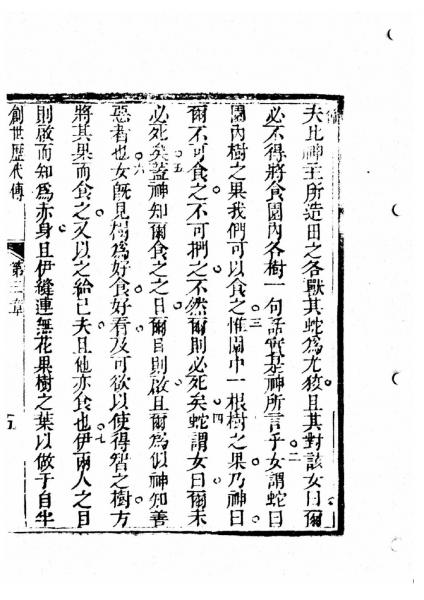 夫比神主所造田之各獸其蛇爲尤狡且其對該女曰爾
必不得將食園內各樹一句話實是神所言乎二女謂蛇曰
園內樹之果我們可以食之三惟園中一根樹之果乃神曰
爾不可食之不可捫之不然爾則必死矣四蛇謂女曰爾未
必死矣五蓋神知爾食之之日爾目則啟且爾爲似神知善
惡者也六女旣見樹爲好食好看及可欲以使得智之樹方
將其果而食之又以之給己夫且他亦食也七伊兩人之目
則啟而知爲赤身且伊縫連無花果樹之葉以做于自
創世歷代傳
第三章
五